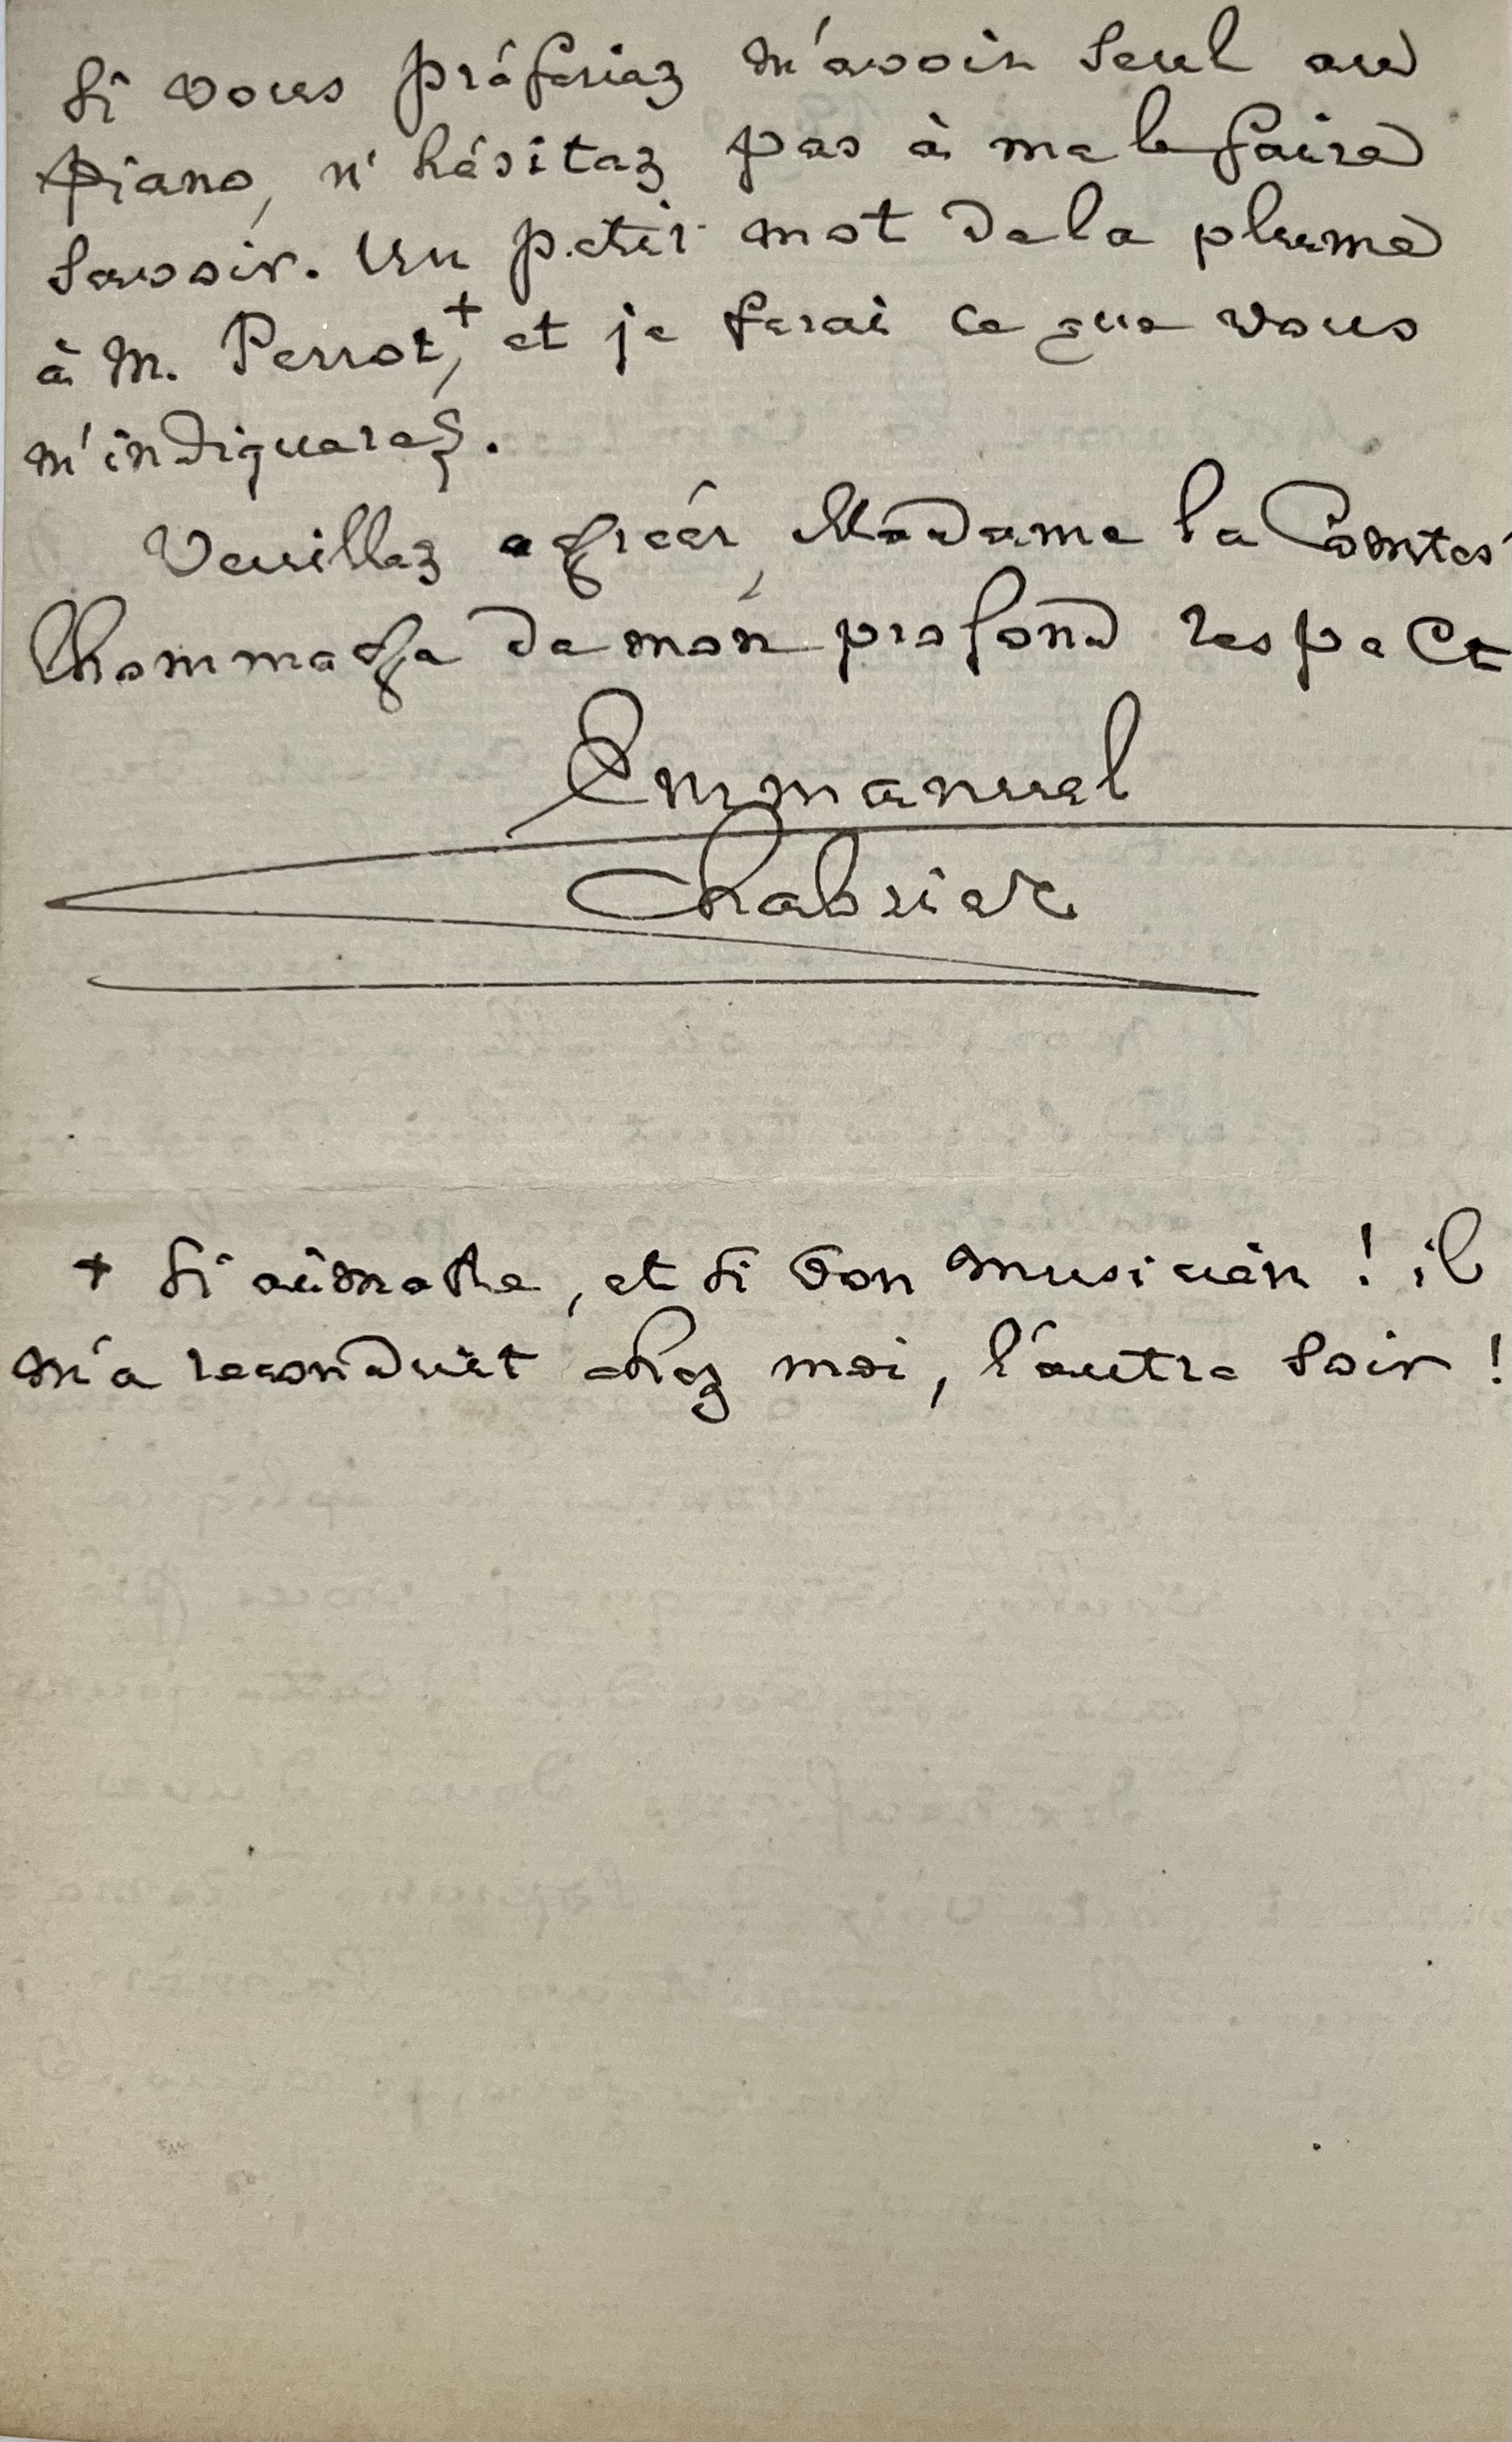 Si vous préfériez m'avoir seul au
piano, n'hésitez pas à me le faire
savoir. Un petit mot de la plume
à M. Perrot,+ et je ferai ce que vous
m'indiquerez.
Veuillez agréer, Madame la Comtes
l'hommage de mon profond respect
Emmanuel
Chabrier
+ Si aimable, et si bon musicien ! il
m'a reconduit chez moi, l'autre soir !